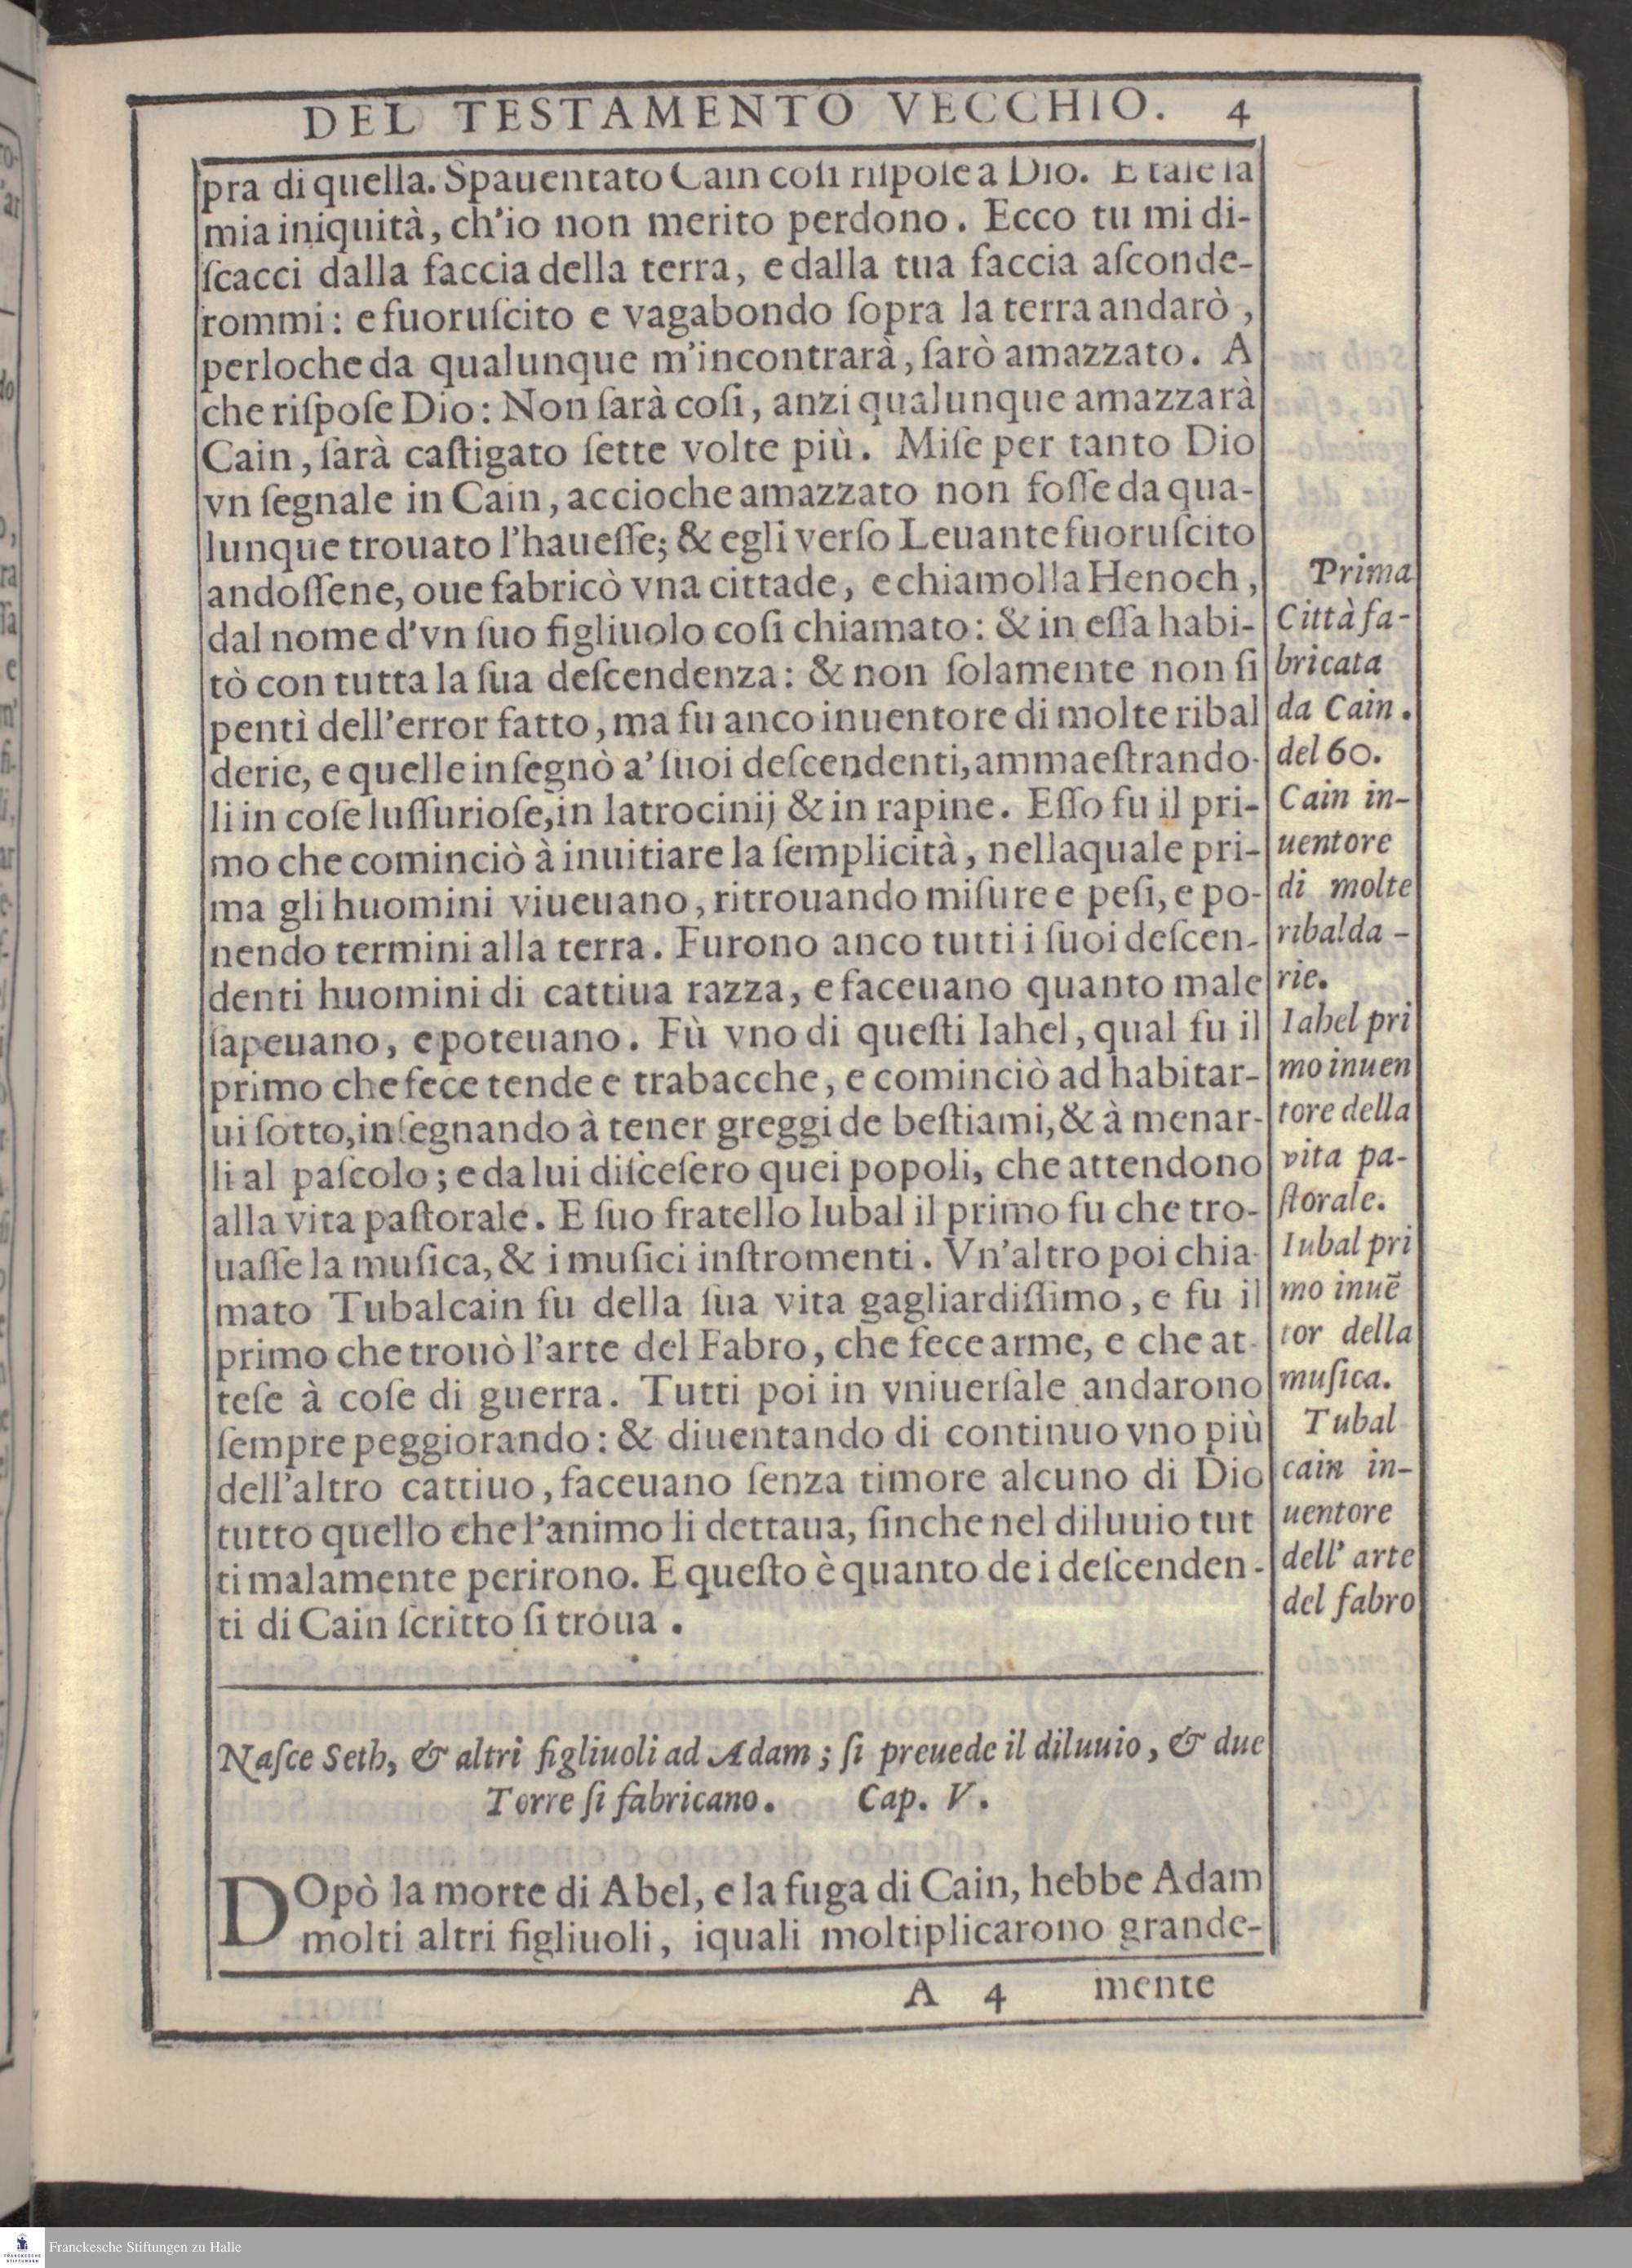 DEL TESTAMENTO VECCHIO. 4
pra di quella. Spauentato Cain coſi riſpoſe a Dio. E tale la
mia iniquità, ch'io non merito perdono. Ecco tu mi di-
ſcacci dalla faccia della terra, e dalla tua faccia aſconde-
rommi: e fuoruſcito e vagabondo ſopra la terra andarò,
perloche da qualunque m'incontrarà, ſarò amazzato. A
che riſpoſe Dio: Non ſarà coſi, anzi qualunque amazzarà
Cain, ſarà caſtigato ſette volte più. Miſe per tanto Dio
vn ſegnale in Cain, accioche amazzato non foſſe da qua-
lunque trouato l'haueſſe; & egli verſo Leuante fuoruſcito
andoſſene, oue fabricò vna cittade, e chiamolla Henoch,
dal nome d'vn ſuo figliuolo coſi chiamato: & in eſſa habi-
tò con tutta la ſua deſcendenza: & non ſolamente non ſi
pentì dell'error fatto, ma fu anco inuentore di molte ribal
derie, e quelle inſegnò a' ſuoi deſcendenti, ammaeſtrando-
li in coſe luſſurioſe, in latrocinij & in rapine. Eſſo fu il pri-
mo che cominciò à inuitiare la ſemplicità, nellaquale pri-
ma gli huomini viueuano, ritrouando miſure e peſi, e po-
nendo termini alla terra. Furono anco tutti i ſuoi deſcen-
denti huomini di cattiua razza, e faceuano quanto male
ſapeuano, e poteuano. Fù vno di queſti Iahel, qual fu il
primo che fece tende e trabacche, e cominciò ad habitar-
ui ſotto, inſegnando à tener greggi de beſtiami, & à menar-
li al paſcolo; e da lui diſceſero quei popoli, che attendono
alla vita paſtorale. E ſuo fratello Iubal il primo fu che tro-
uaſſe la muſica, & i muſici inſtromenti. Vn'altro poi chia-
mato Tubalcain fu della ſua vita gagliardiſſimo, e fu il
primo che trouò l'arte del Fabro, che fece arme, e che at-
teſe à coſe di guerra. Tutti poi in vniuerſale andarono
ſempre peggiorando: & diuentando di continuo vno più
dell'altro cattiuo, faceuano ſenza timore alcuno di Dio
tutto quello che l'animo li dettaua, ſinche nel diluuio tut
ti malamente perirono. E queſto è quanto de i deſcenden-
ti di Cain ſcritto ſi troua.
Prima
Città fa-
bricata
da Cain.
del 60.
Cain in-
uentore
di molte
ribalda-
rie.
Iahel pri
mo inuen
tore della
vita pa-
ſtorale.
Iubal pri
mo inuẽ
tor della
muſica.
Tubal
cain in-
uentore
dell' arte
del fabro
Naſce Seth, & altri figliuoli ad Adam; ſi preuede il diluuio, & due
Torre ſi fabricano. Cap. V.
DOpò la morte di Abel, e la fuga di Cain, hebbe Adam
molti altri figliuoli, iquali moltiplicarono grande-
A 4 mente
FRANCKESCHE
STIFTUNGEN
Franckesche Stiftungen zu Halle